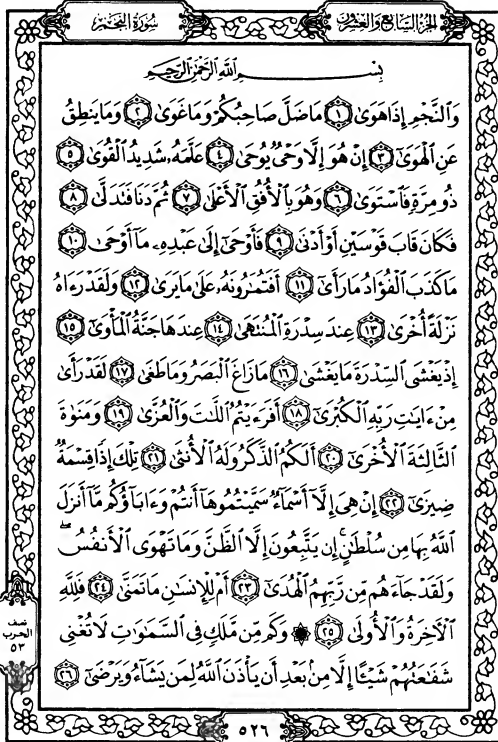 سُورَةُ النَّجْمِ
الجُزْءُ السَّابِعُ وَالعِشْرُونَ
بِسْمِ اللَّهِ الرَّحْمَٰنِ الرَّحِيمِ
وَالنَّجْمِ إِذَا هَوَىٰ ١ مَا ضَلَّ صَاحِبُكُمْ وَمَا غَوَىٰ ٢ وَمَا يَنطِقُ
عَنِ الْهَوَىٰ ٣ إِنْ هُوَ إِلَّا وَحْيٌ يُوحَىٰ ٤ عَلَّمَهُ شَدِيدُ الْقُوَىٰ ٥
ذُو مِرَّةٍ فَاسْتَوَىٰ ٦ وَهُوَ بِالْأُفُقِ الْأَعْلَىٰ ٧ ثُمَّ دَنَا فَتَدَلَّىٰ ٨
فَكَانَ قَابَ قَوْسَيْنِ أَوْ أَدْنَىٰ ٩ فَأَوْحَىٰ إِلَىٰ عَبْدِهِ مَا أَوْحَىٰ ١٠
مَا كَذَبَ الْفُؤَادُ مَا رَأَىٰ ١١ أَفَتُمَٰرُونَهُ عَلَىٰ مَا يَرَىٰ ١٢ وَلَقَدْ رَءَاهُ
نَزْلَةً أُخْرَىٰ ١٣ عِندَ سِدْرَةِ الْمُنتَهَىٰ ١٤ عِندَهَا جَنَّةُ الْمَأْوَىٰ ١٥
إِذْ يَغْشَى السِّدْرَةَ مَا يَغْشَىٰ ١٦ مَا زَاغَ الْبَصَرُ وَمَا طَغَىٰ ١٧ لَقَدْ رَأَىٰ
مِنْ ءَايَٰتِ رَبِّهِ الْكُبْرَىٰ ١٨ أَفَرَءَيْتُمُ اللَّٰتَ وَالْعُزَّىٰ ١٩ وَمَنَوٰةَ
الثَّالِثَةَ الْأُخْرَىٰ ٢٠ أَلَكُمُ الذَّكَرُ وَلَهُ الْأُنثَىٰ ٢١ تِلْكَ إِذًا قِسْمَةٌ
ضِيزَىٰ ٢٢ إِنْ هِيَ إِلَّا أَسْمَاءٌ سَمَّيْتُمُوهَا أَنتُمْ وَءَابَاؤُكُم مَّا أَنزَلَ
اللَّهُ بِهَا مِن سُلْطَٰنٍ ۚ إِن يَتَّبِعُونَ إِلَّا الظَّنَّ وَمَا تَهْوَى الْأَنفُسُ ۖ
وَلَقَدْ جَاءَهُم مِّن رَّبِّهِمُ الْهُدَىٰ ٢٣ أَمْ لِلْإِنسَٰنِ مَا تَمَنَّىٰ ٢٤ فَلِلَّهِ
الْآخِرَةُ وَالْأُولَىٰ ٢٥ ۞ وَكَم مِّن مَّلَكٍ فِي السَّمَٰوَٰتِ لَا تُغْنِي
شَفَٰعَتُهُمْ شَيْئًا إِلَّا مِن بَعْدِ أَن يَأْذَنَ اللَّهُ لِمَن يَشَاءُ وَيَرْضَىٰ ٢٦
نصف
الحزب
٥٣
٥٢٦